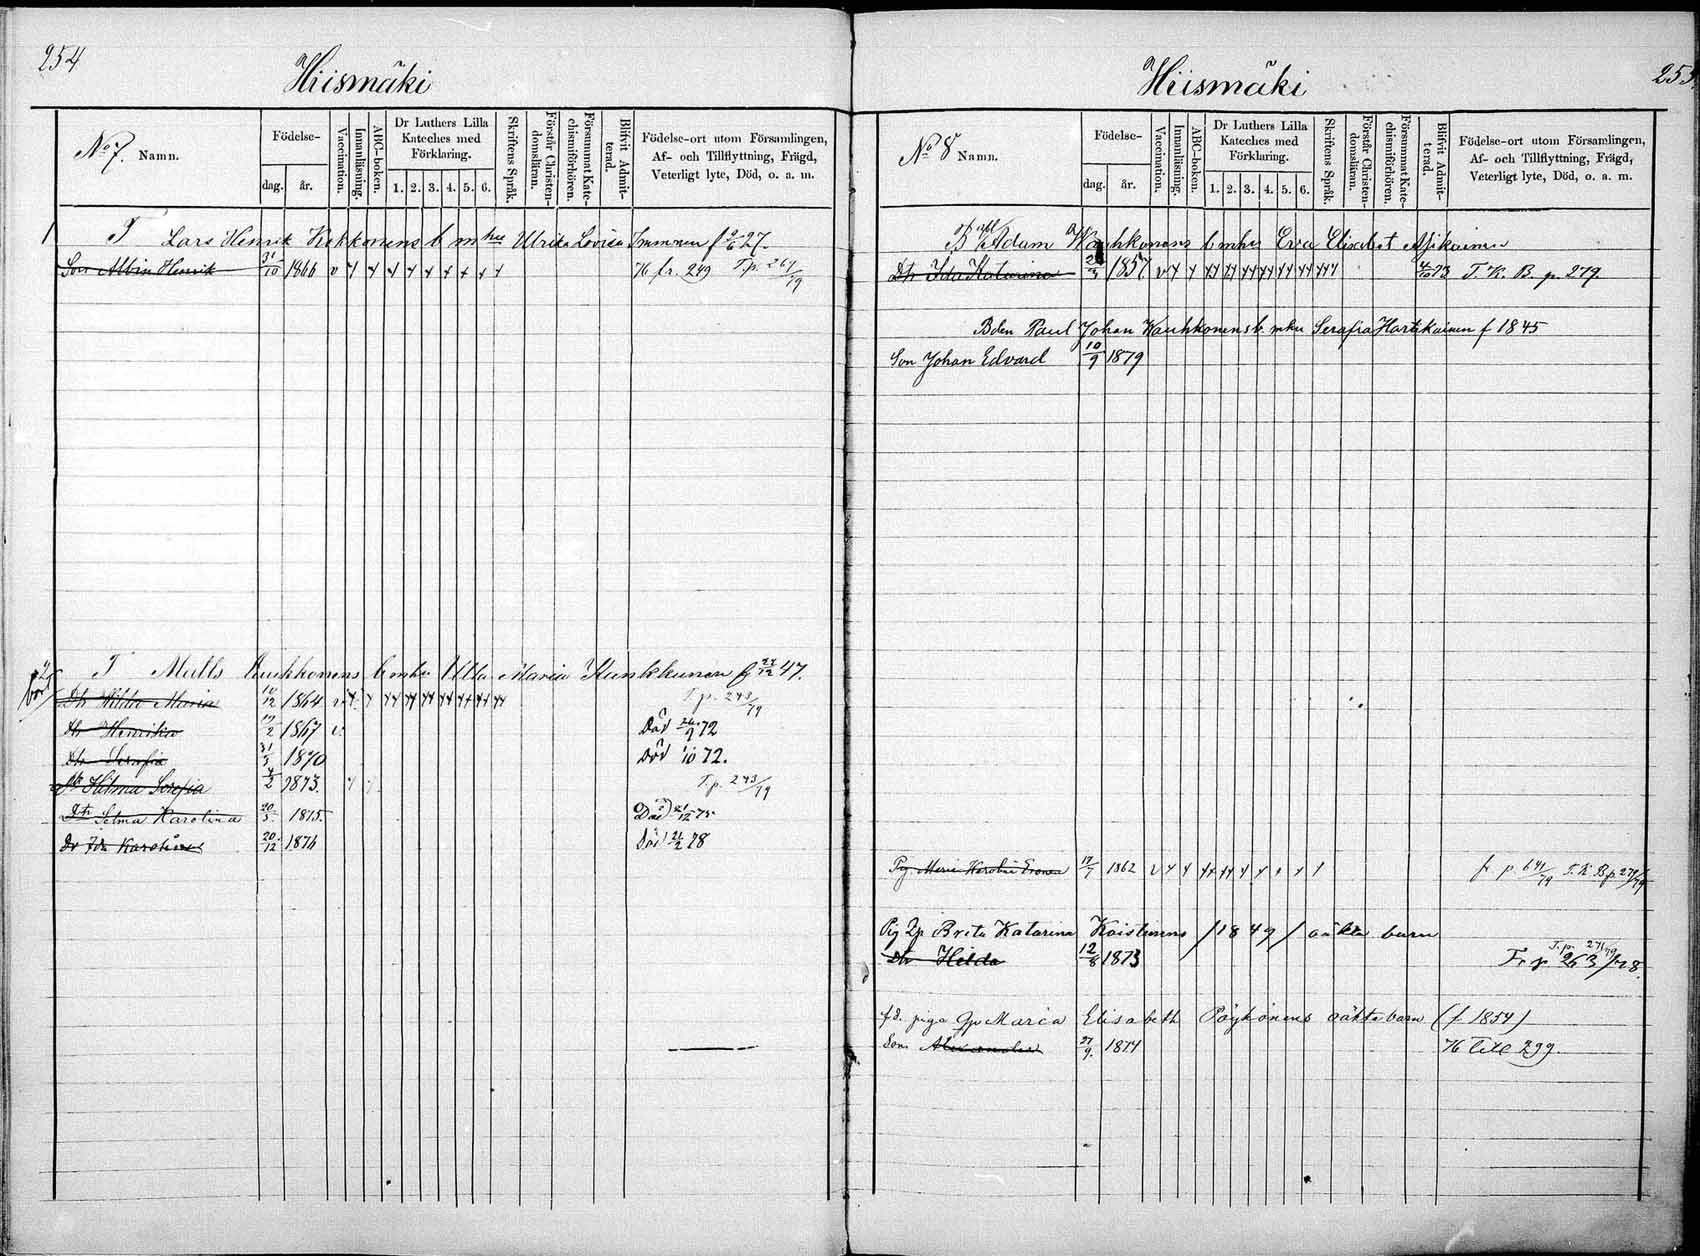 254
Hiismäki
No 7. Namn.
Födelse-
dag. år.
Vaccination.
Innanläsning.
ABC-boken.
Dr Luthers Lilla Kateches med Förklaring.
1. 2. 3. 4. 5. 6.
Skriftens Språk.
Förstår Christen-domsläran.
Försummat Kate-chismiförhören.
Blifvit Admit-terad.
Födelse-ort utom Församlingen,
Af- och Tillflyttning, Frägd,
Veterligt lyte, Död, o. a. m.
1 T Lars Henrik Kokkonens b m hu Ulrika Lovisa Immonen f 9/6 27.
Son Albin Henrik 31/10 1866 v 76 fr. 249 T.p. 267/79
2 T Matts Kuukkonens b mhu Ulla Maria Kunkkunen f 27/12 47.
Dtr Hilda Maria 10/12 1864 v T.p. 243/79
Dtr Henrika 17/2 1867 v. Död 26/9 72
Dtr Serafia 31/5 1870 Död 1/10 72.
Dtr Hilma Serafia 4/2 1873. T.p. 243/79
Dtr Selma Karolina 20/5 1875. Död 21/12 75
Dr Ida Karolina 20/12 1876 Död 21/2 78
255
Hiismäki
No 8 Namn.
Födelse-
dag. år.
Vaccination.
Innanläsning.
ABC-boken.
Dr Luthers Lilla Kateches med Förklaring.
1. 2. 3. 4. 5. 6.
Skriftens Språk.
Förstår Christen-domsläran.
Försummat Kate-chismiförhören.
Blifvit Admit-terad.
Födelse-ort utom Församlingen,
Af- och Tillflyttning, Frägd,
Veterligt lyte, Död, o. a. m.
B Adam Kauhkonens b mhu Eva Elisabet
Dtr Ida Katarina 1857 v 4/10 73 T. K. B. p. 279.
Bden Paul Johan Kauhkonens b. mhu Serafia Hartikainen f 1845
Son Johan Edvard 10/9 1879
Pig. Maria Karolina Eronen 17/7 1862 v fr p. 641/79 T. K. B p 279/79
Pig Qp Brita Katarina Koistinens /1849/ oäkta barn
Dtr Hilda 12/8 1873 T.p. 271/79 Fr p 263/78.
fd. piga Qp Maria Elisabeth Pöykönens oäkta barn (f 1854)
Son Alexander 27/9. 1874 76 till 299.